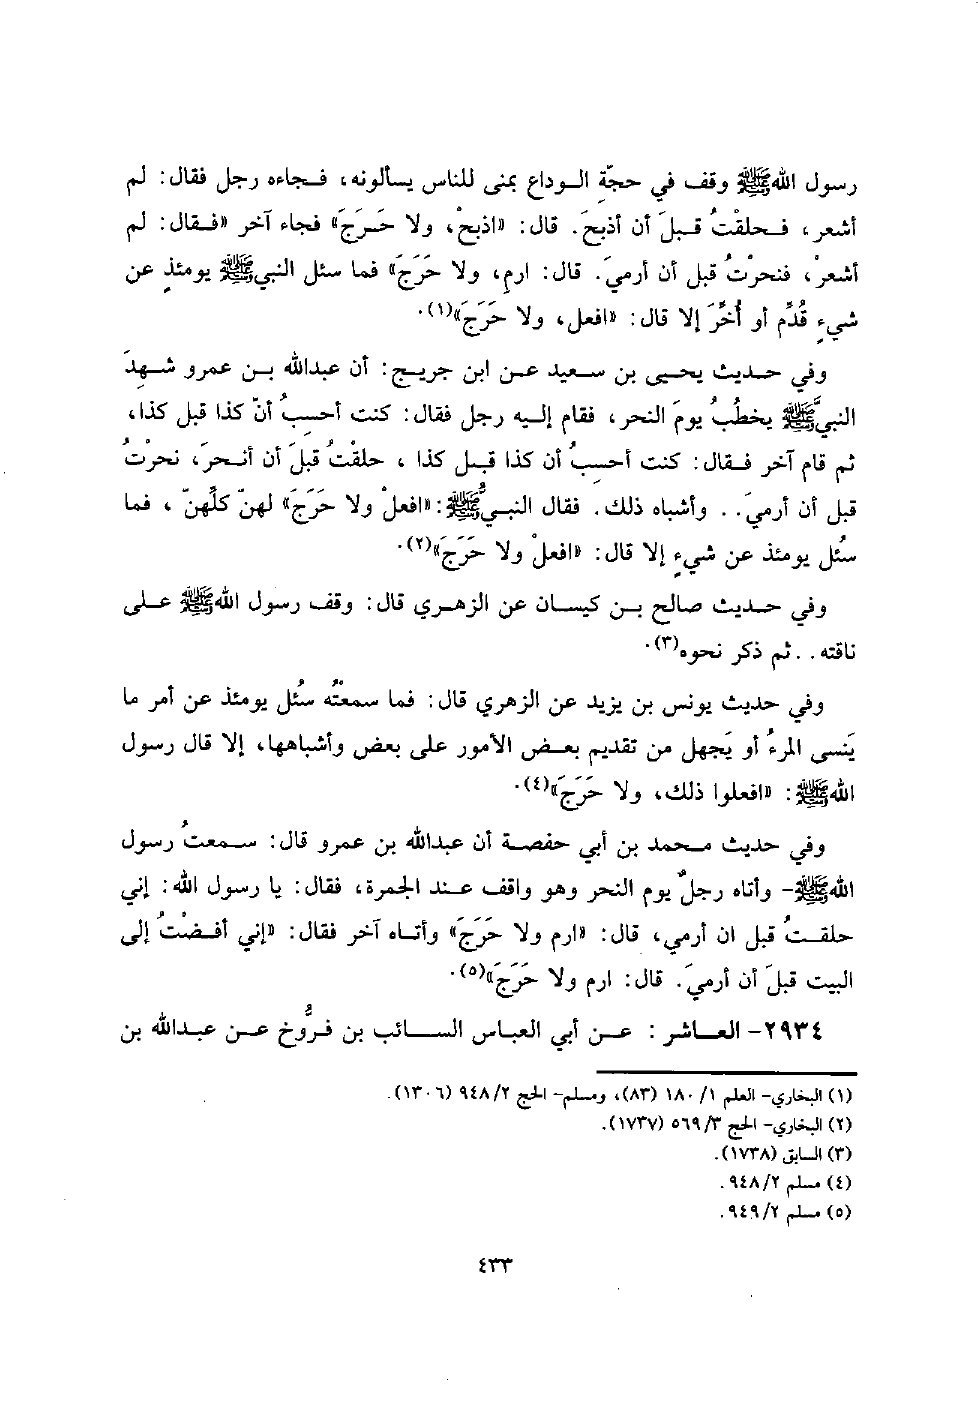 رسول الله ﷺ وقف في حجّةِ الـوداع بمنى للناس يسألونه، فـجاءه رجل فقال: لم
أشعر، فـحلقْتُ قـبلَ أن أذبحَ. قال: «اذبحْ، ولا حَـرَجَ» فجاء آخر «فـقال: لم
أشعرْ، فنحرْتُ قبل أن أرميَ. قال: ارمِ، ولا حَرَجَ» فما سئل النبي ﷺ يومئذٍ عن
شيءٍ قُدِّم أو أُخِّرَ إلا قال: «افعل، ولا حَرَجَ»(١).
وفي حـديث يحـيى بن سـعيد عـن ابن جريـج: أن عبدالله بـن عمرو شـهِدَ
النبيَّ ﷺ يخطُبُ يومَ النحر، فقام إليه رجل فقال: كنت أحسِبُ أنّ كذا قبل كذا،
ثم قام آخر فـقال: كنت أحسِبُ أن كذا قبـل كذا ، حلقْتُ قبلَ أن أنـحرَ، نحرْتُ
قبل أن أرميَ. . وأشباه ذلك. فقال النبـيُّ ﷺ: «افعلْ ولا حَرَجَ» لهنّ كلِّهنّ ، فما
سُئل يومئذ عن شيءٍ إلا قال: «افعلْ ولا حَرَجَ»(٢).
وفي حـديث صالح بـن كيسـان عن الزهـري قال: وقف رسول الله ﷺ عـلى
ناقته . . ثم ذكر نحوه(٣).
وفي حديث يونس بن يزيد عن الزهري قال: فما سمعْتُه سُئل يومئذ عن أمر ما
يَنسى المرءُ أو يَجهل من تقديم بعـض الأمور على بعض وأشباهها، إلا قال رسول
الله ﷺ: «افعلوا ذلك، ولا حَرَجَ»(٤).
وفي حديث مـحمد بن أبي حفصـة أن عبدالله بن عمرو قال: سـمعتُ رسول
الله ﷺ- وأتاه رجلٌ يوم النحر وهو واقف عـند الجمرة، فقال: يا رسول الله: إني
حلقـتُ قبل ان أرمي، قال: «ارم ولا حَرَجَ» وأتـاه آخر فقال: «إني أفـضْتُ إلى
البيت قبلَ أن أرميَ. قال: ارم ولا حَرَجَ»(٥).
٢٩٣٤- العـاشر : عـن أبي العباس السـائب بن فـرُّوخ عـن عبـدالله بن
(١) البخاري- العلم ١/ ١٨٠ (٨٣)، ومسلم- الحج ٢/ ٩٤٨ (١٣٠٦).
(٢) البخاري- الحج ٣/ ٥٦٩ (١٧٣٧).
(٣) السابق (١٧٣٨).
(٤) مسلم ٢/ ٩٤٨.
(٥) مسلم ٢/ ٩٤٩.
٤٣٣